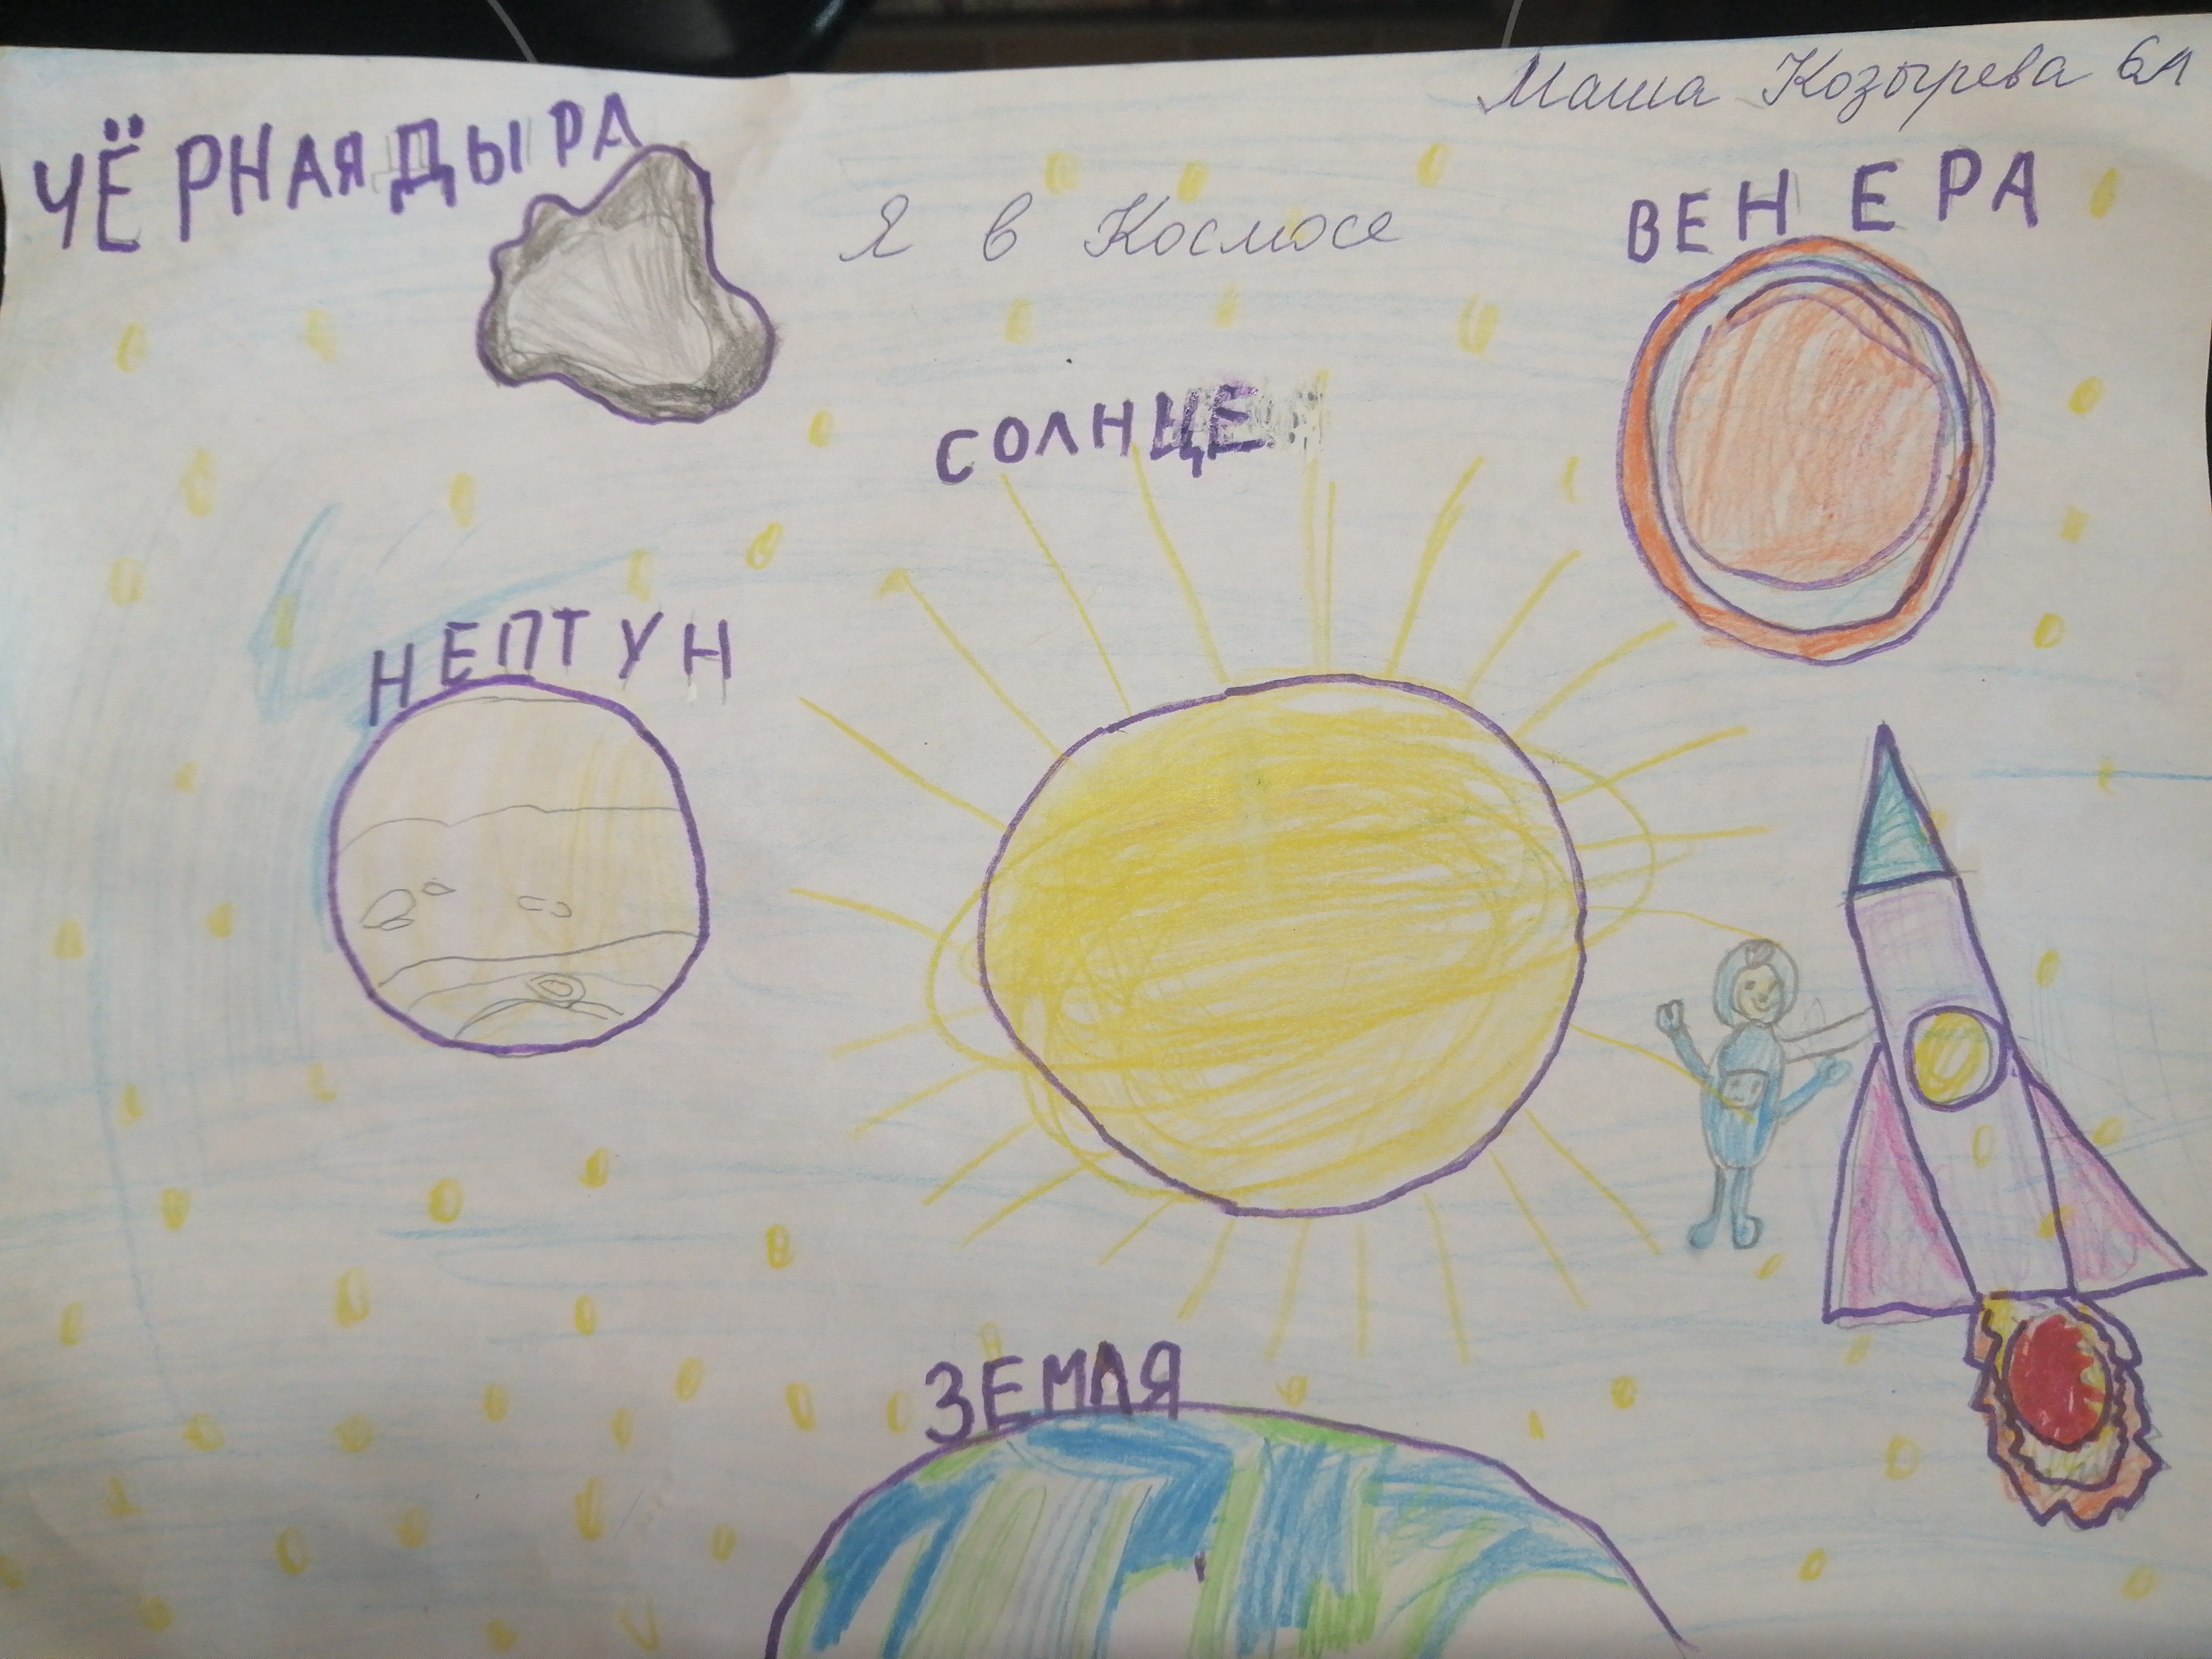 Маша Козырева 6л
ЧЁРНАЯ ДЫРА
Я в Космосе
ВЕНЕРА
СОЛНЦЕ
НЕПТУН
ЗЕМЛЯ